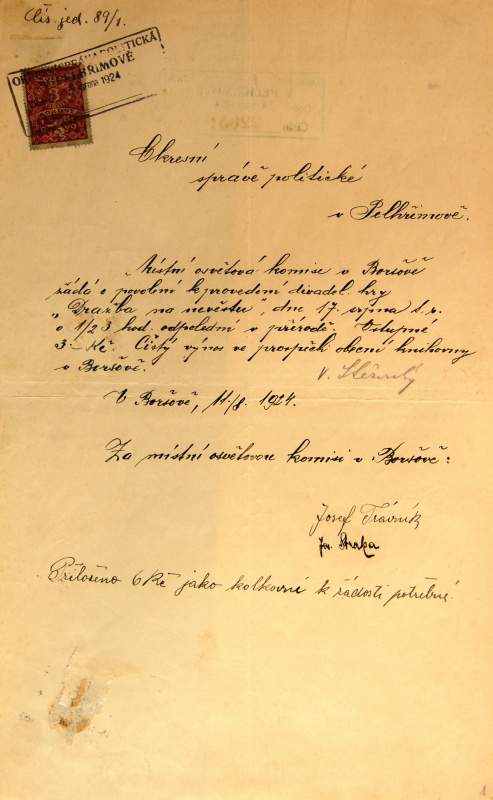 Čís. jed. 89/1.
OKRESNÍ SPRÁVA POLITICKÁ
srpna 1924
Okresní
správě politické
v Pelhřimově.
Místní osvětová komise v Boršově
žádá o povolení k provedení divadel. hry
„Dražba na nevěstu", dne 17. srpna t. r.
o 1/2 3 hod. odpolední v přírodě. Vstupné
3·- Kč. Čistý výnos ve prospěch obecní knihovny
v Boršově.
V Boršově, 11./8. 1924.
Za místní osvětovou komisi v Boršově:
Josef Trávník
Jos. Straka
Přiloženo 6 Kč jako kolkovné k žádosti potřebné.
1